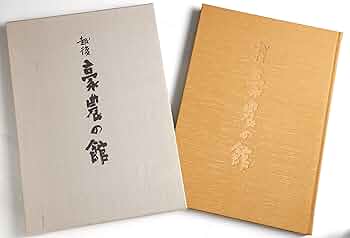 越後
豪農の館
越後
豪農の館